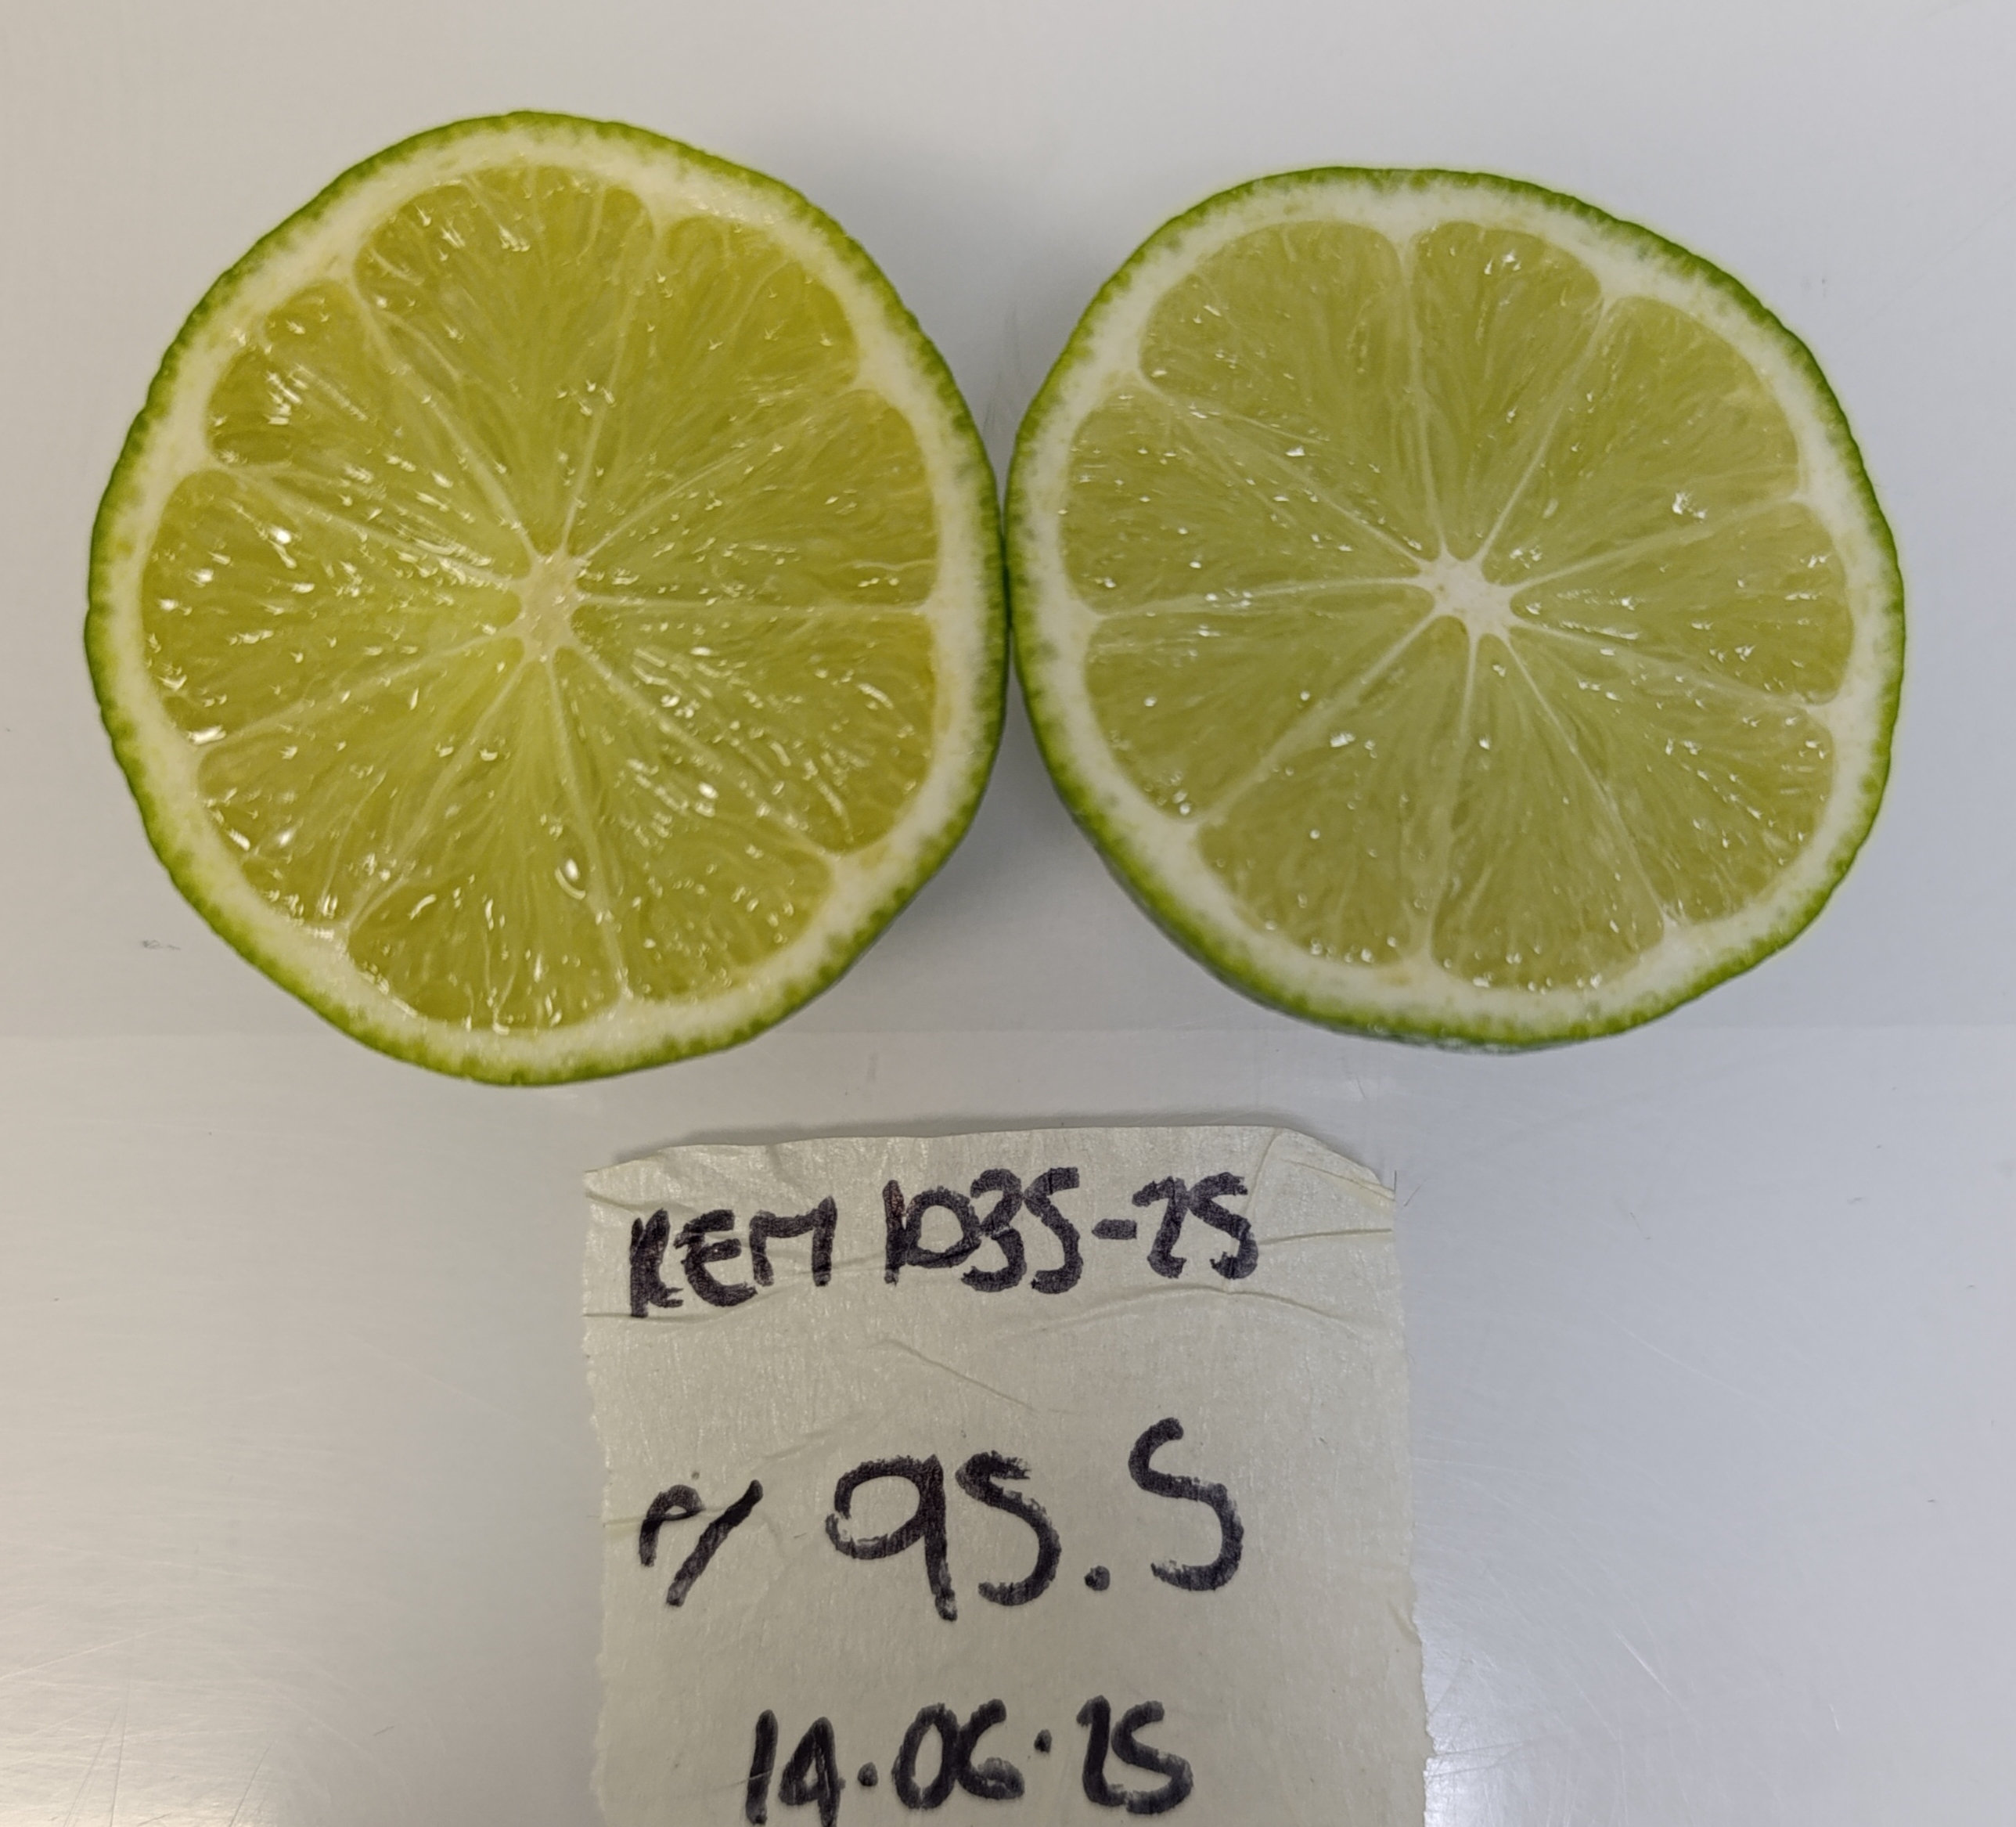 REM 1035-25
P/ 95.5
14.06.25